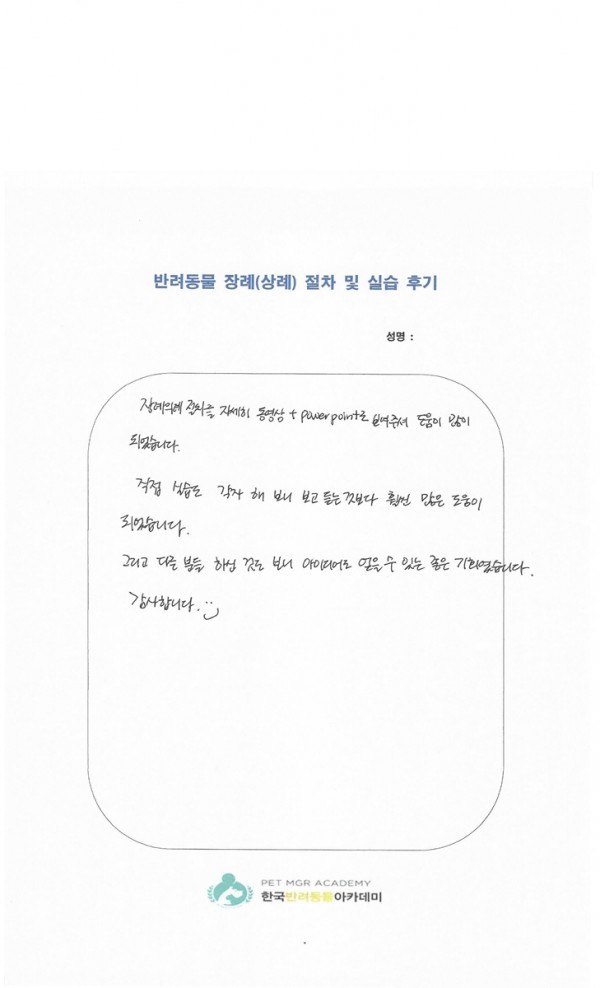 반려동물 장례(상례) 절차 및 실습 후기
성명 :
장례의례 절차를 자세히 동영상 + powerpoint로 보여주셔 도움이 많이
되었습니다.
직접 실습도 각자 해 보니 보고 듣는것보다 훨씬 많은 도움이
되었습니다.
그리고 다른 분들 하신 것도 보니 아이디어도 얻을 수 있는 좋은 기회였습니다.
감사합니다.
PET MGR ACADEMY
한국반려동물아카데미